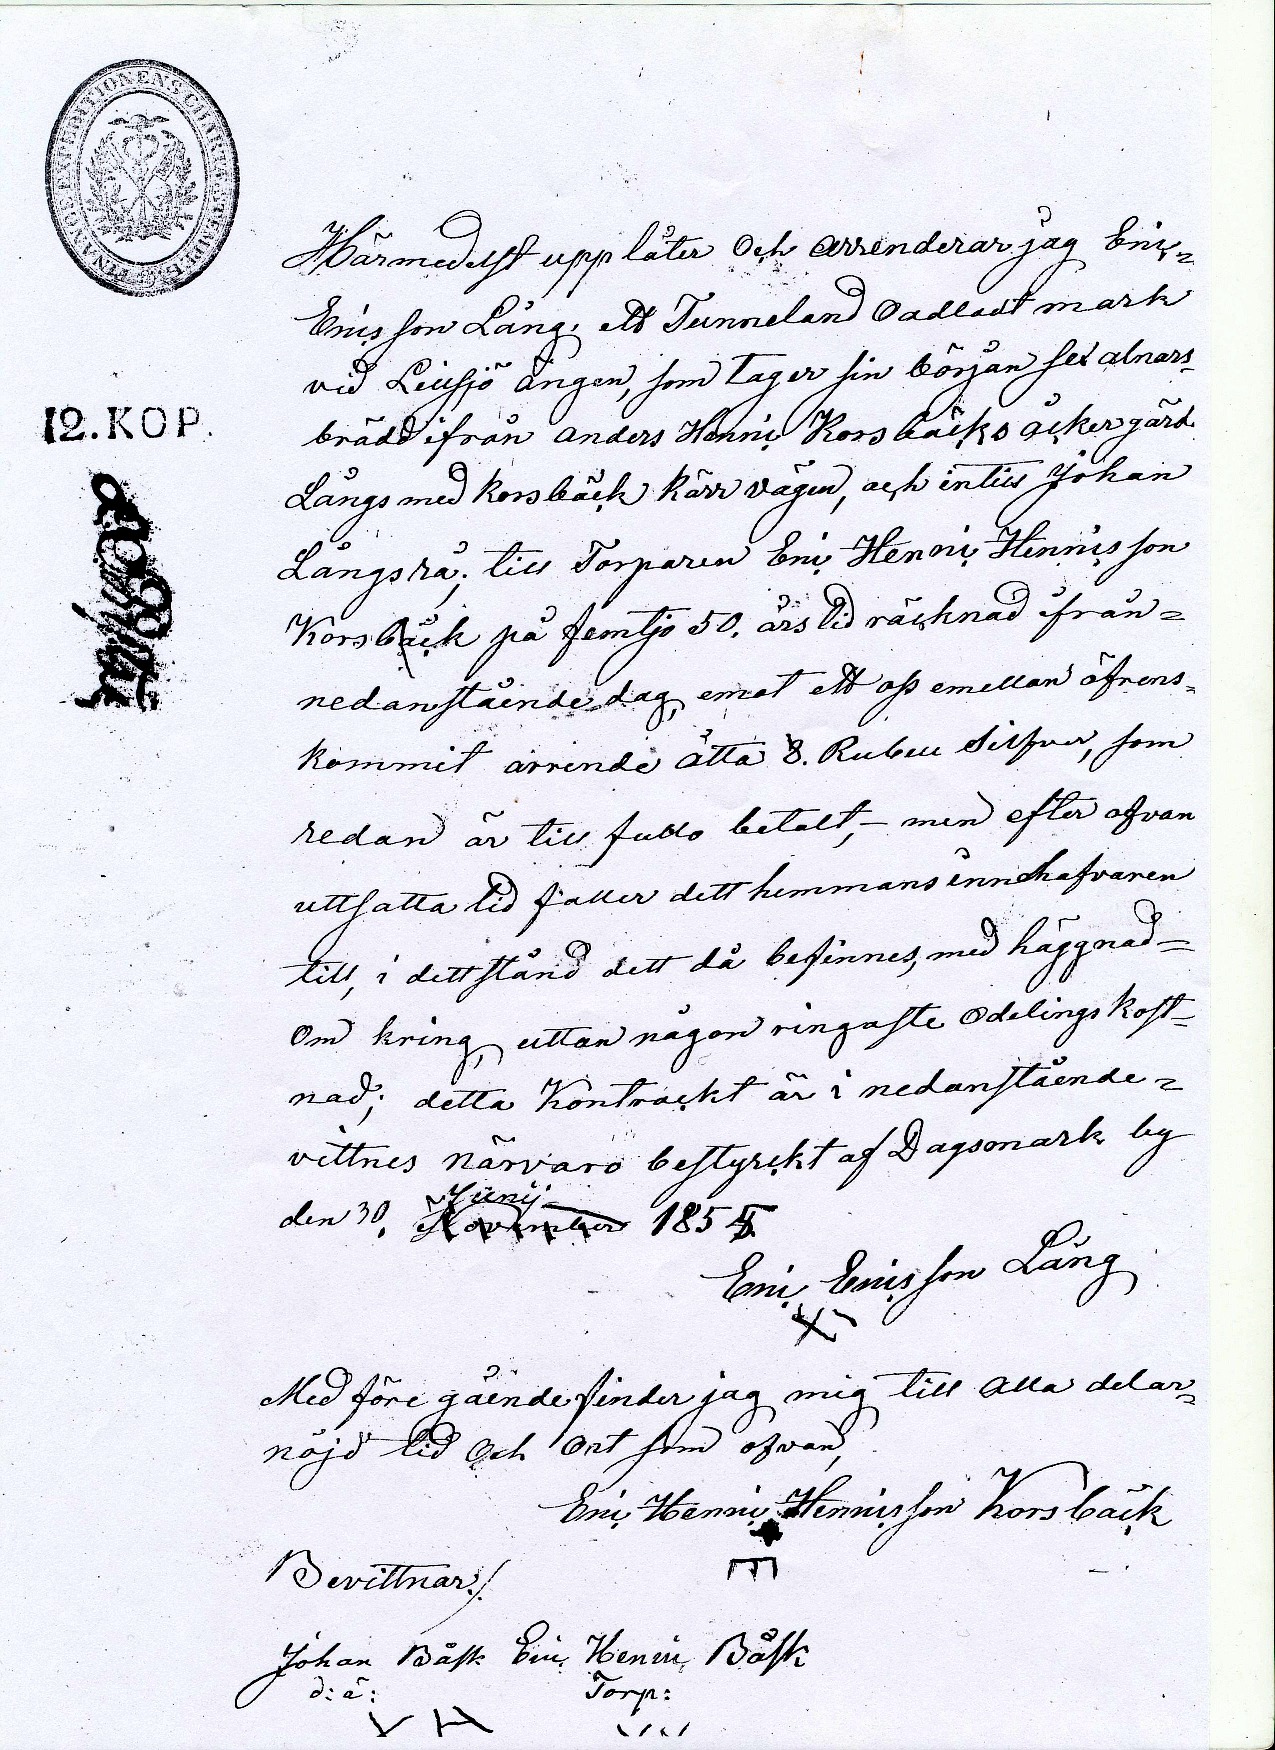 FINANCE EXPEDITIONENS CHARTÆ
12. KOP.
Härmedelst upplåter Och arrenderar jag Eriç
Eriçsson Lång, ett Tunneland Oadladt mark
vid Leusjö ängen, som tager sin början sex alnars
brädd ifrån anders Henriç Korsbäçks åçkergärd
Långsmed korsbäçk kärr vägen, och intill Johan
Långs rå; till Torparen Eriç Henriç Henriçsson
Korsbäçk på femtjo 50. års tid räçknad ifrån=
nedanstående dag, emot ett oss emellan öfrens=
kommit arrende åtta 8. Rubell Silfver, som
redan är till fullo betalt,– men efter ofvan
uttsatta tid faller dett hemmans innehafvaren
till, i dett stånd dett då befinnes, med häggnad=
Om kring, uttan någon ringaste Odelings kost=
nad; detta Kontraçkt är i nedanstående=
vittnes närvaro bestyreçkt af Dagsmark by
den 30. Junij November 185
Eriç Eriçsson Lång
Med före gående finder jag mig till Alla delar=
nöjd tid Och Ort som ofvan,
Eriç Henriç Henriçsson Korsbäçk
Bevittnar./.
Johan Båsk Eriç Henriç Båsk
d: ä: Torp: